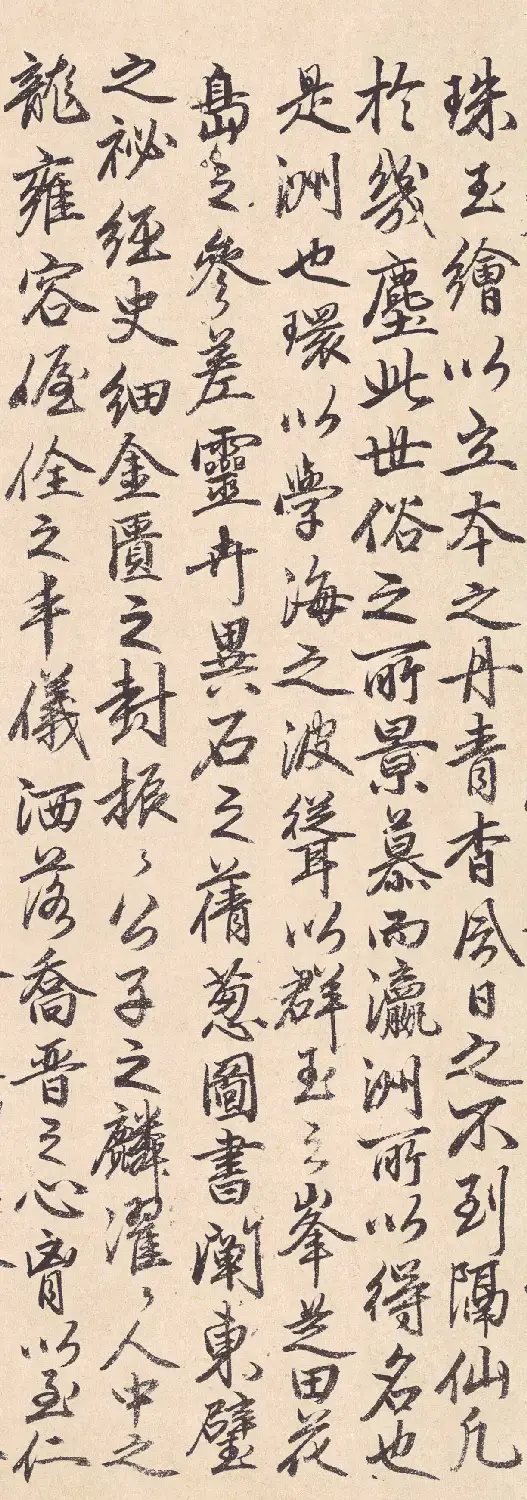 珠玉繪以立本之丹青杳風日之不到隔仙凡
於幾塵此世俗之所景慕而瀛洲所以得名也
是洲也環以學海之波聳以群玉之峯芝田花
島之參差靈卉異石之蒨葱圖書闡東壁
之祕經史細金匱之封振〻公子之麟濯〻人中之
龍雍容偓佺之丰儀洒落喬晋之心胷以至仁